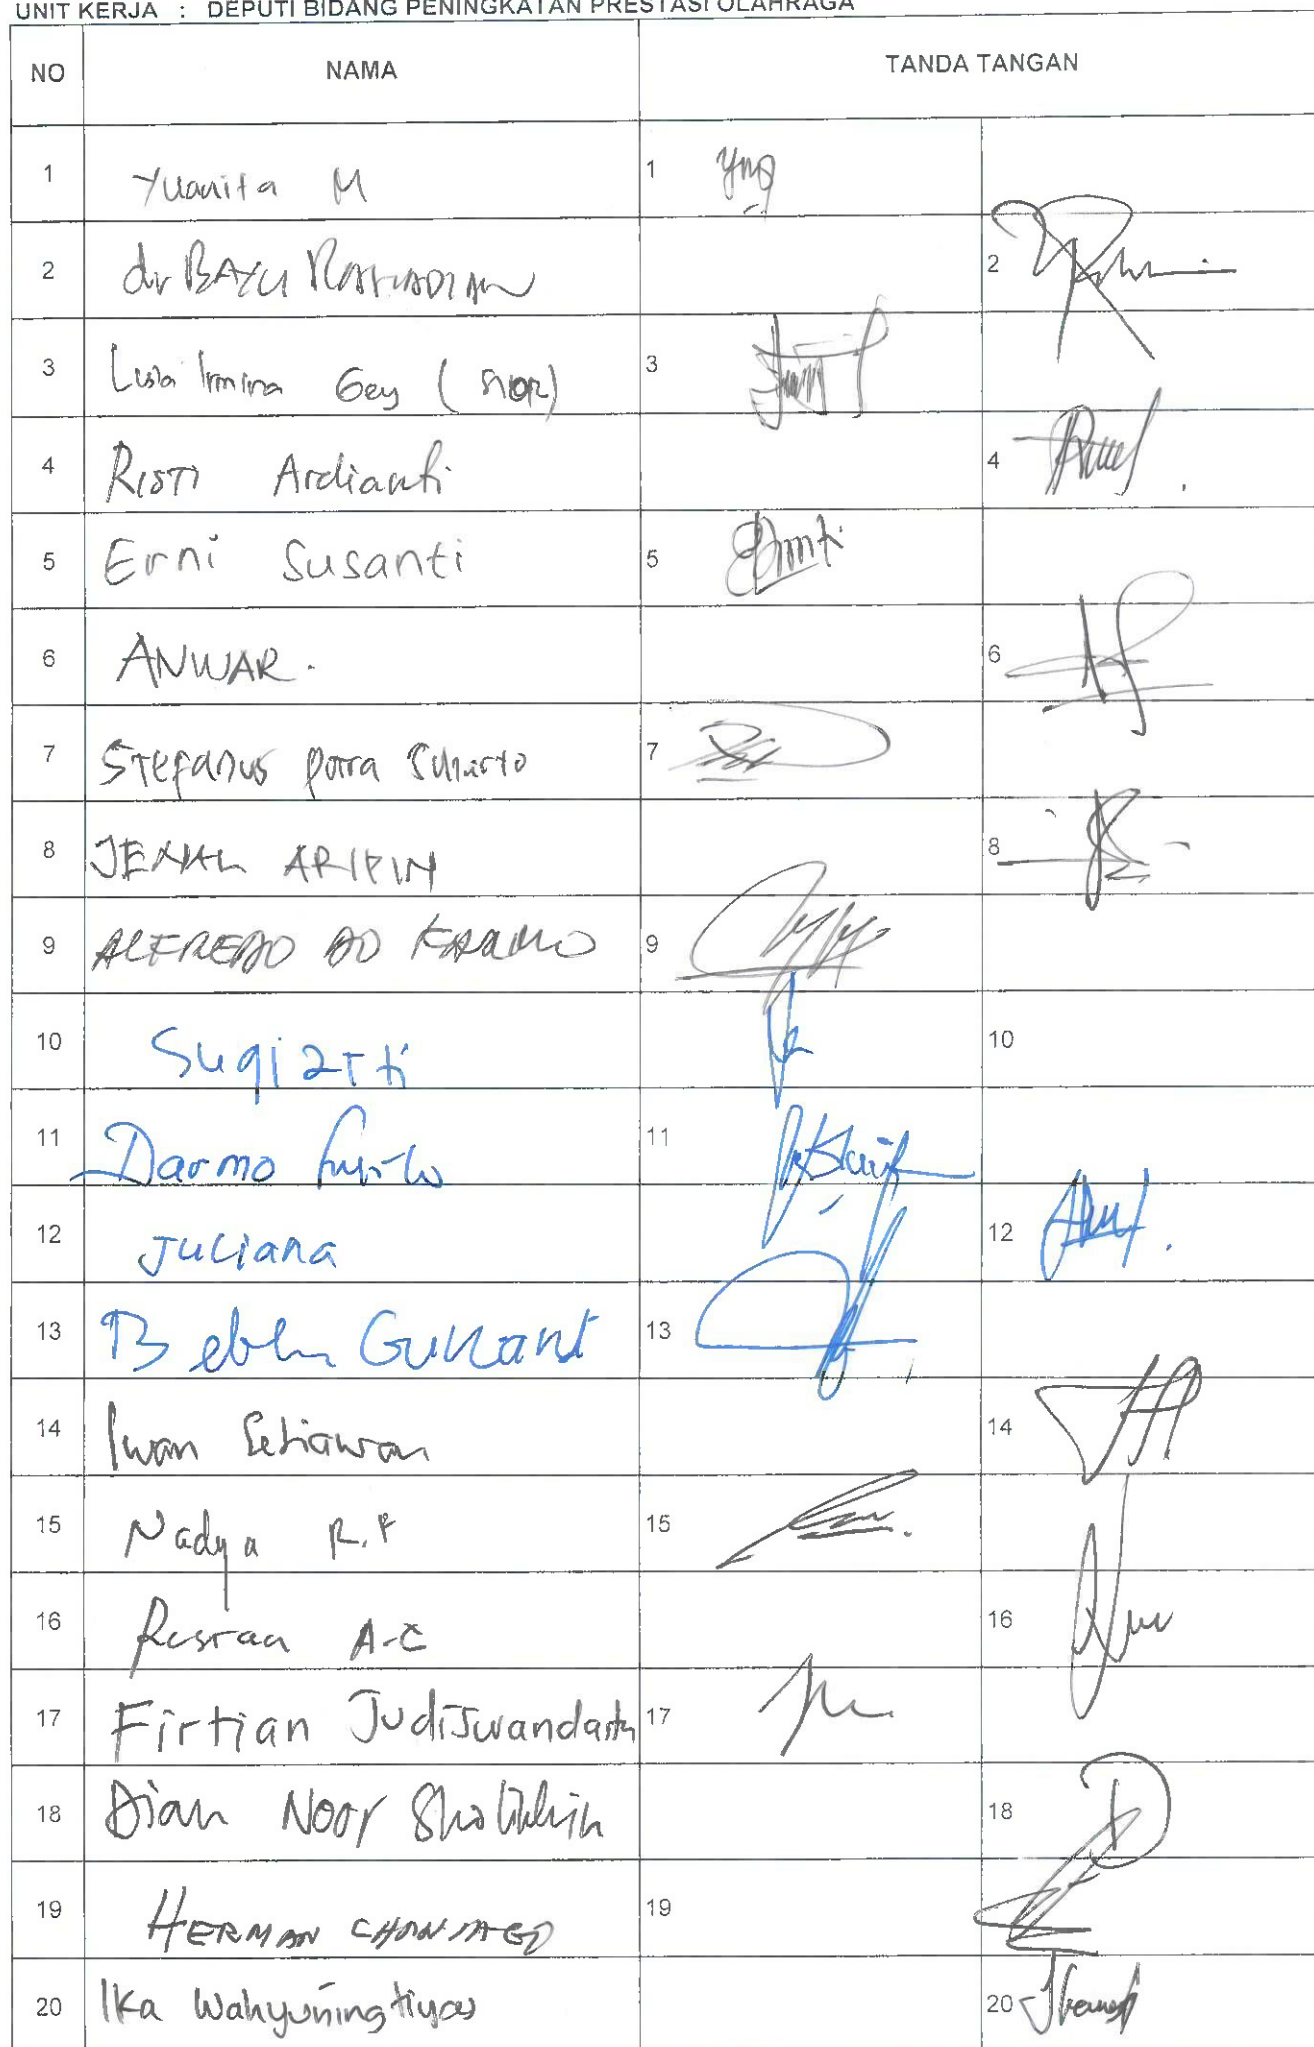 UNIT KERJA : DEPUTI BIDANG PENINGKATAN PRESTASI OLAHRAGA
NO NAMA TANDA TANGAN
1 Yuanita M 1
2 dr BAYU RAHADIAN 2
3 Lusia Irmina Gey 3
4 RISTI Ardianti 4
5 Erni Susanti 5
6 ANWAR. 6
7 Stefanus 7
8 JENAL ARIPIN 8
9 ALFREDO 9
10 Sugiarti 10
11 Darmo Susilo 11
12 Juliana 12
13 Gunant 13
14 Iwan Setiawan 14
15 Nadya R.P 15
16 16
17 Firtian 17
18 Dian Noor Sholikhin 18
19 HERMAN CHANIAGO 19
20 Ika Wahyuningtiyas 20